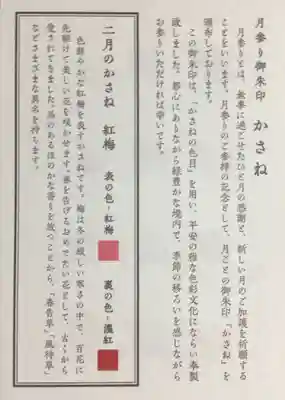 月参り御朱印 かさね
月参りとは、無事に過ごせたひと月の感謝と、新しい月のご加護を祈願する
ことをいいます。月参りのご参拝の記念として、月ごとの御朱印「かさね」を
頒布しております。
この御朱印は、「かさねの色目」を用い、平安の雅な色彩文化にならい奉製
致しました。都心にありながら緑豊かな境内で、季節の移ろいを感じながら
お参りいただければ幸いです。
二月のかさね 紅梅 表の色-紅梅 裏の色-濃紅
色鮮やかな紅梅を表すかさねです。梅は冬の厳しい寒さの中で、百花に
先駆けて美しい花を咲かせます。春を告げるおめでたい花として、古くから
愛されてきました。馬のあるほのかな香りを放つことから、「春告草」「風待草」
などさまざまな異名を持ちます。